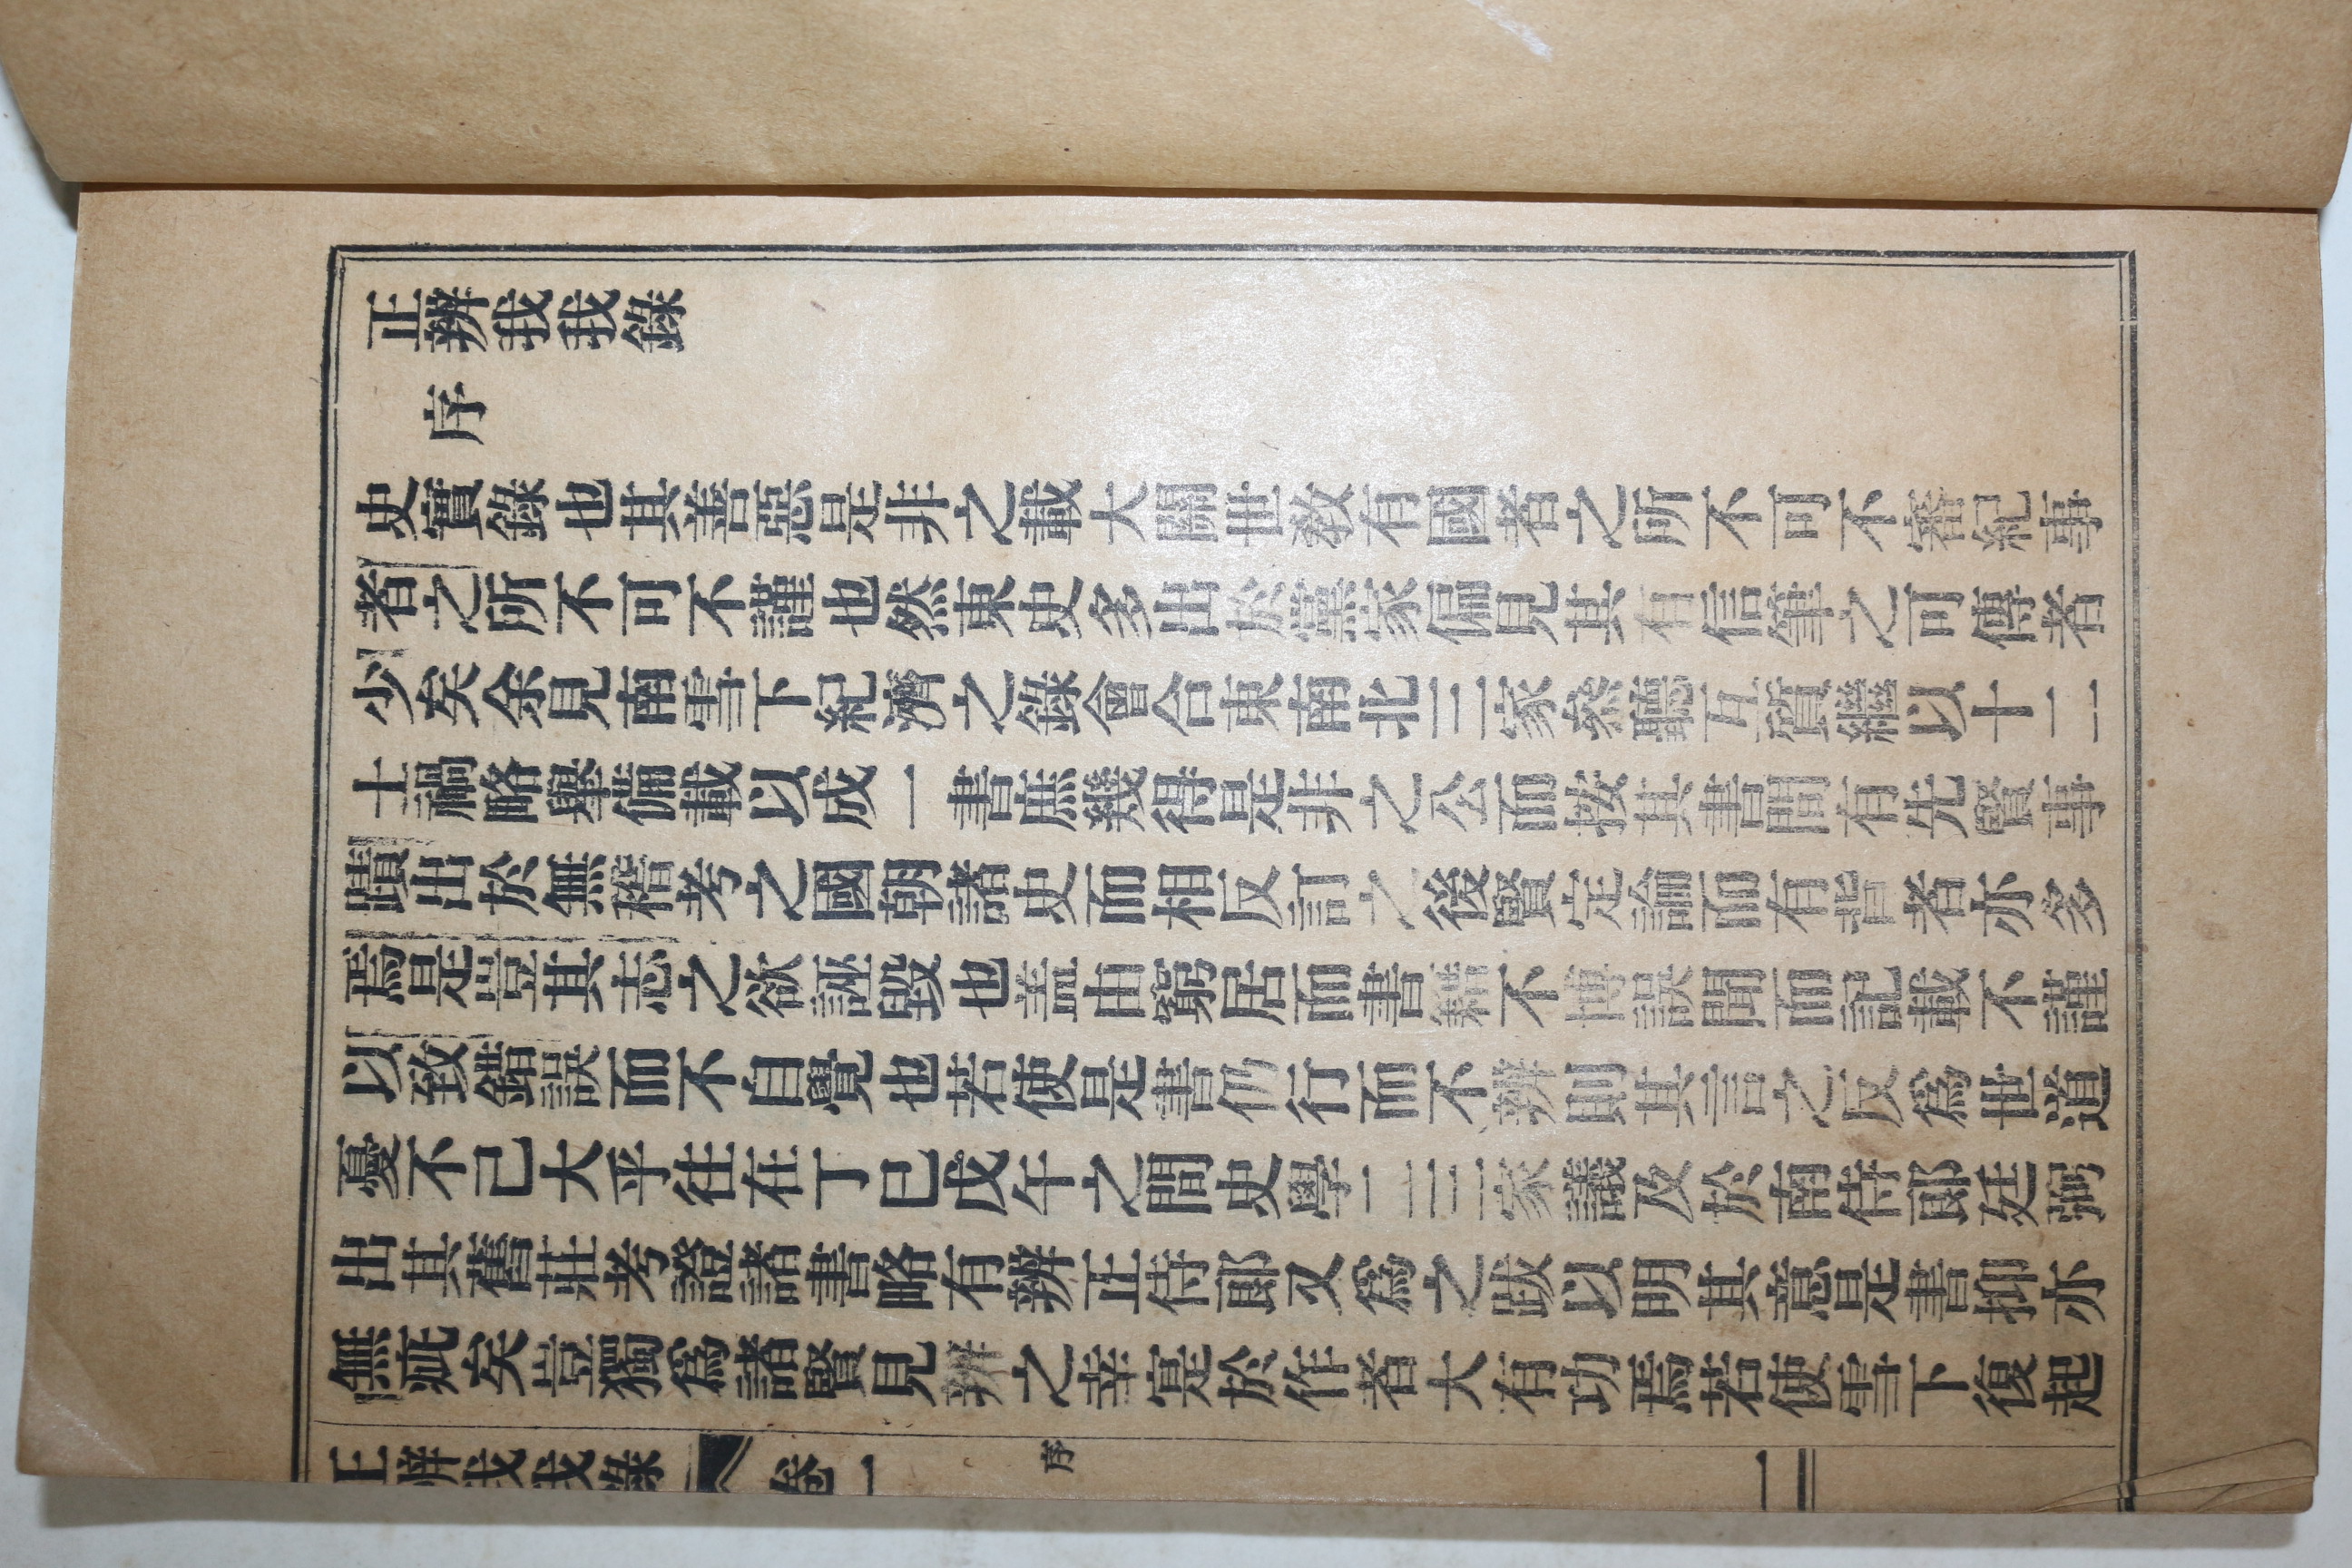 正辨我我錄
序
史實錄也其善惡是非之載大關世敎有國者之所不可不審紀事
者之所不可不謹也然東史多出於黨家偏見其有信筆之可傳者
少矣余見南雪下紀濟之錄會合東南北三家叅聽互質繼以十二
士禍略擧備載以成一書庶幾得是非之公而按其書間有先賢事
蹟出於無稽考之國朝諸史而相反訂之後賢定論而有背者亦多
焉是豈其志之欲誣毀也盖由窮居而書籍不博誤聞而記載不謹
以致錯誤而不自覺也若使是書仍行而不辨則其言之反爲世道
憂不已大乎往在丁巳戊午之間史學二三家議及於南侍郞廷弼
出其舊莊考證諸書略有辨正侍郞又爲之跋以明其意是書抑亦
無疵矣豈獨爲諸賢見辨之幸寔於作者大有功焉若使雪下復起
正辨我我錄 卷一 序 一